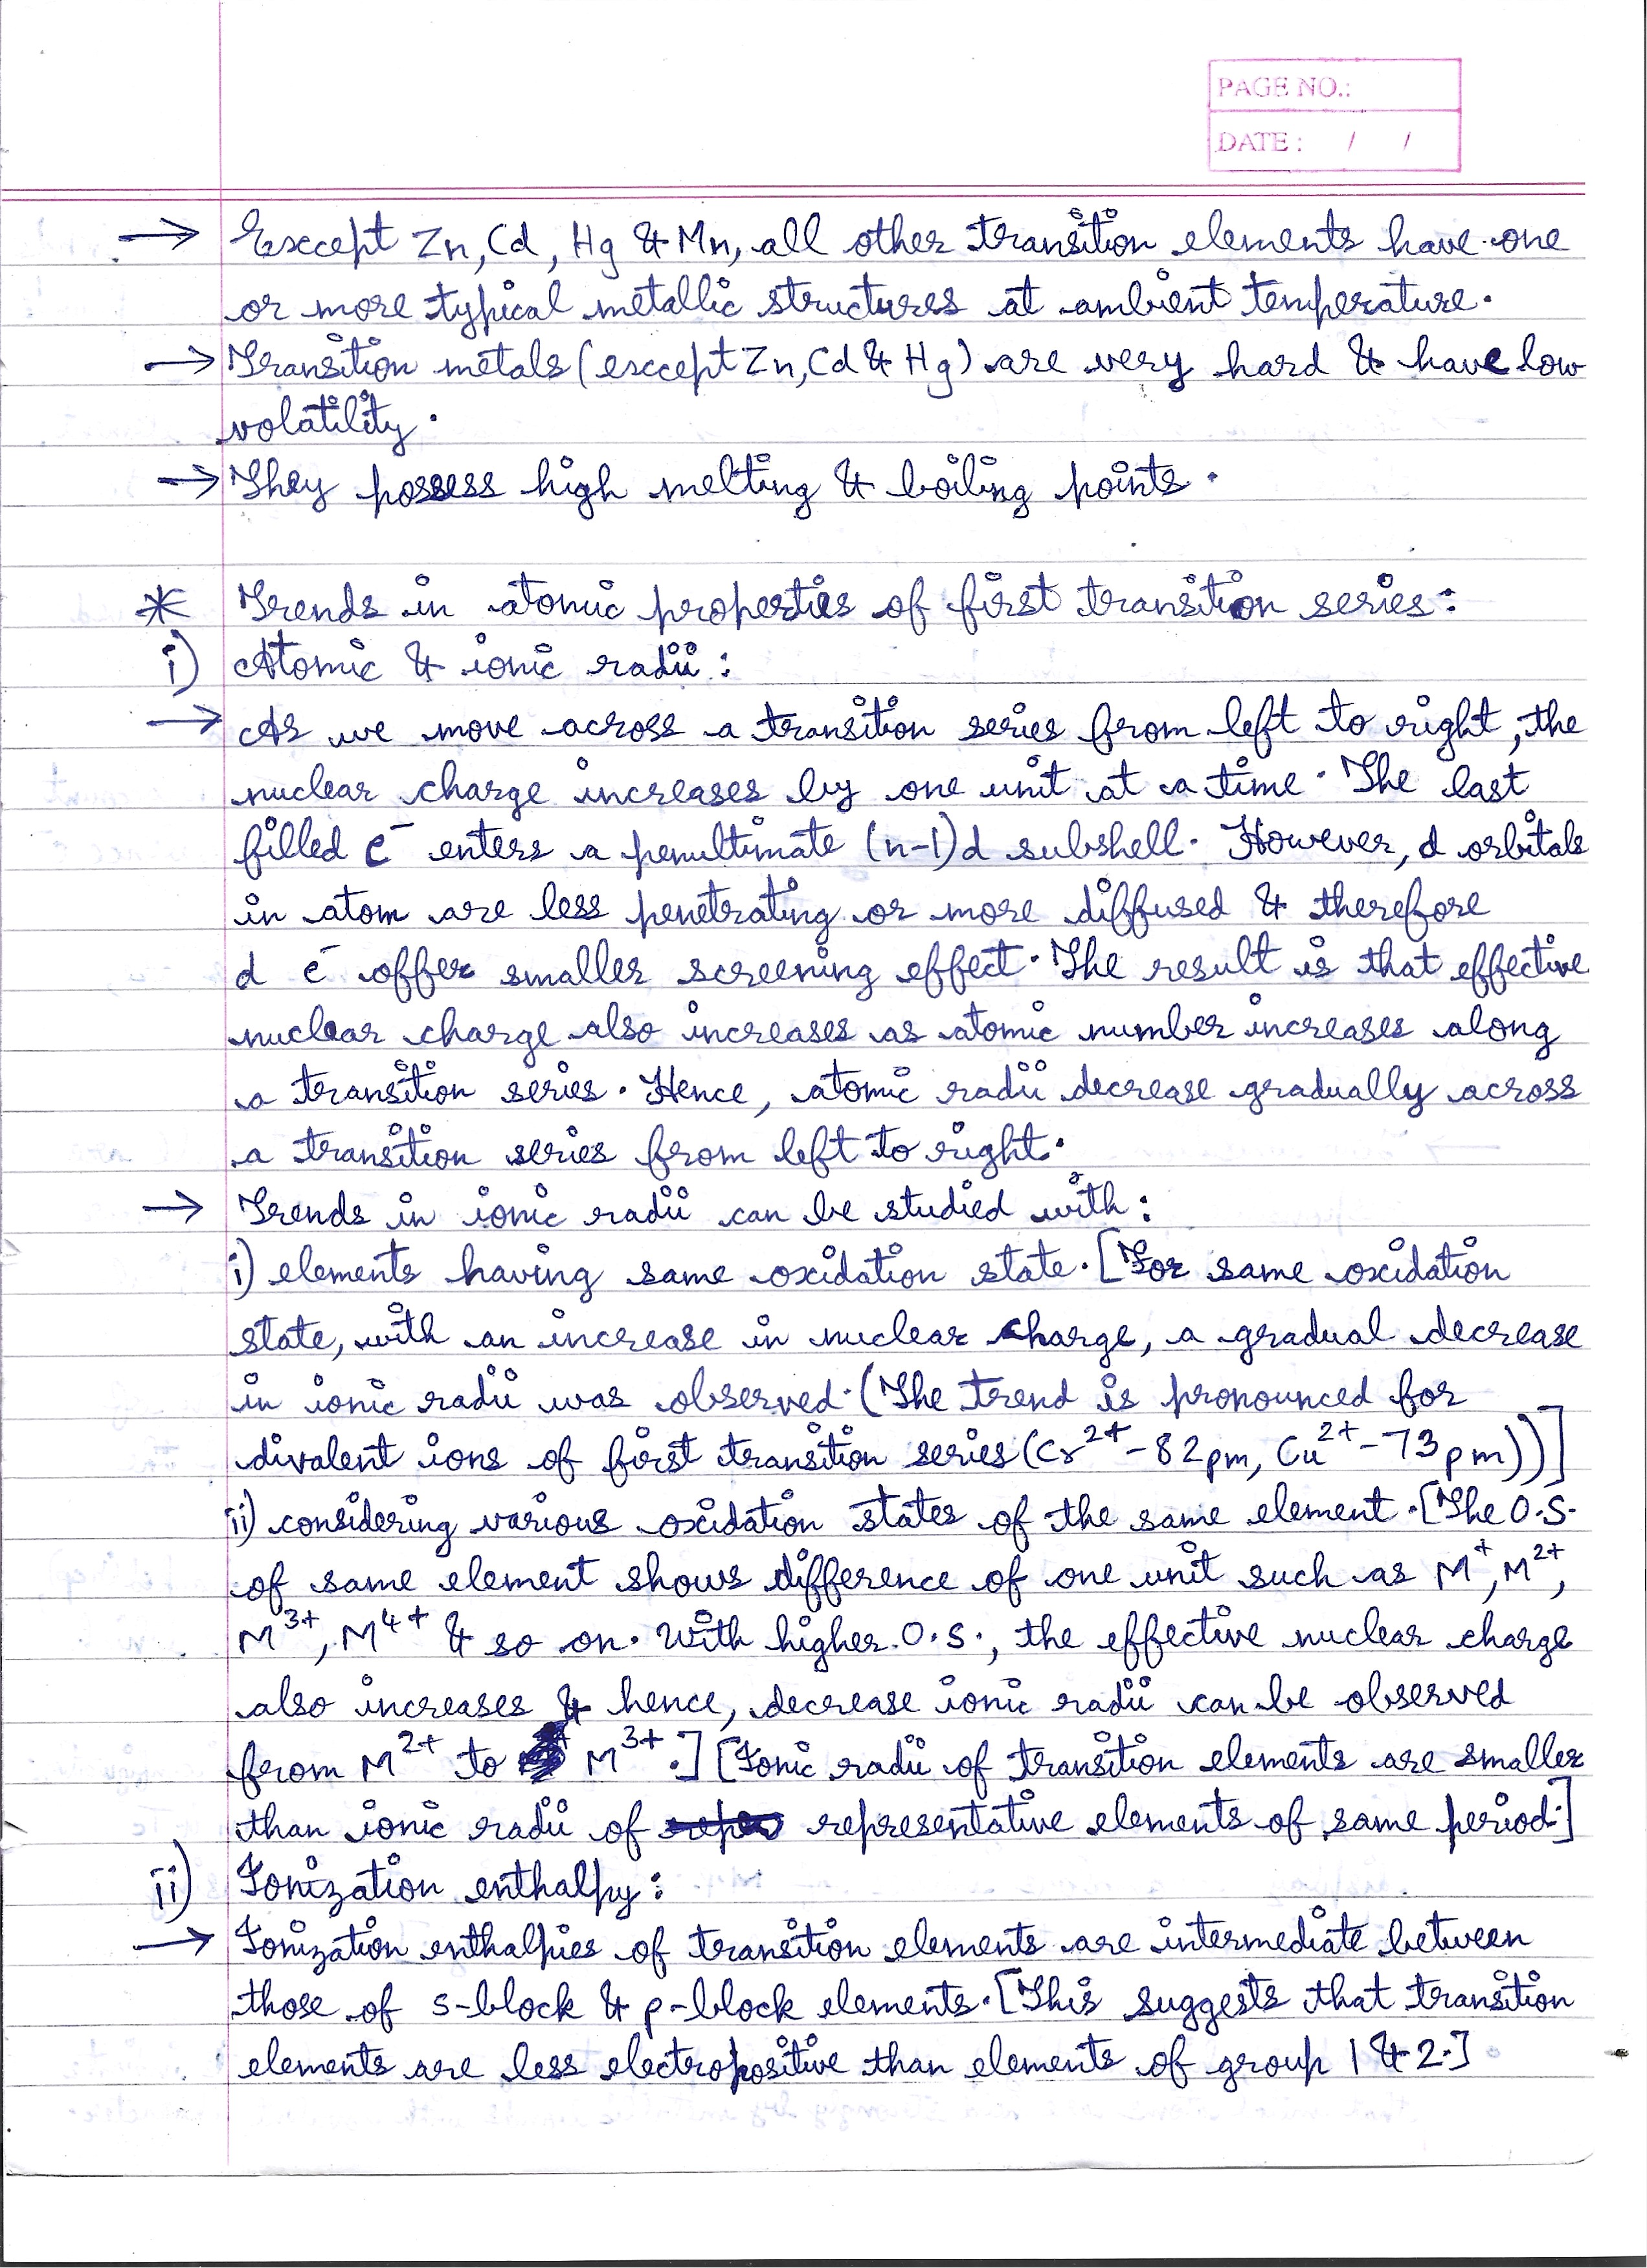 PAGE NO.:
DATE : / /
→ Except Zn, Cd, Hg & Mn, all other transition elements have one
or more typical metallic structures at ambient temperature.
→ Transition metals (except Zn, Cd & Hg) are very hard & have low
volatility.
→ They possess high melting & boiling points.
* Trends in atomic properties of first transition series:
i) Atomic & ionic radii:
→ As we move across a transition series from left to right, the
nuclear charge increases by one unit at a time. The last
filled e⁻ enters a penultimate (n-1)d subshell. However, d orbitals
in atom are less penetrating or more diffused & therefore
d e⁻ offer smaller screening effect. The result is that effective
nuclear charge also increases as atomic number increases along
a transition series. Hence, atomic radii decrease gradually across
a transition series from left to right.
→ Trends in ionic radii can be studied with:
i) elements having same oxidation state. [For same oxidation
state, with an increase in nuclear charge, a gradual decrease
in ionic radii was observed. (The trend is pronounced for
divalent ions of first transition series (Cr²⁺-82pm, Cu²⁺-73pm))]
ii) considering various oxidation states of the same element. [The O.S.
of same element shows difference of one unit such as M⁺, M²⁺,
M³⁺, M⁴⁺ & so on. With higher O.S., the effective nuclear charge
also increases & hence, decrease ionic radii can be observed
from M²⁺ to M³⁺.] [Ionic radii of transition elements are smaller
than ionic radii of representative elements of same period.]
ii) Ionization enthalpy:
→ Ionization enthalpies of transition elements are intermediate between
those of s-block & p-block elements. [This suggests that transition
elements are less electropositive than elements of group 1 & 2.]